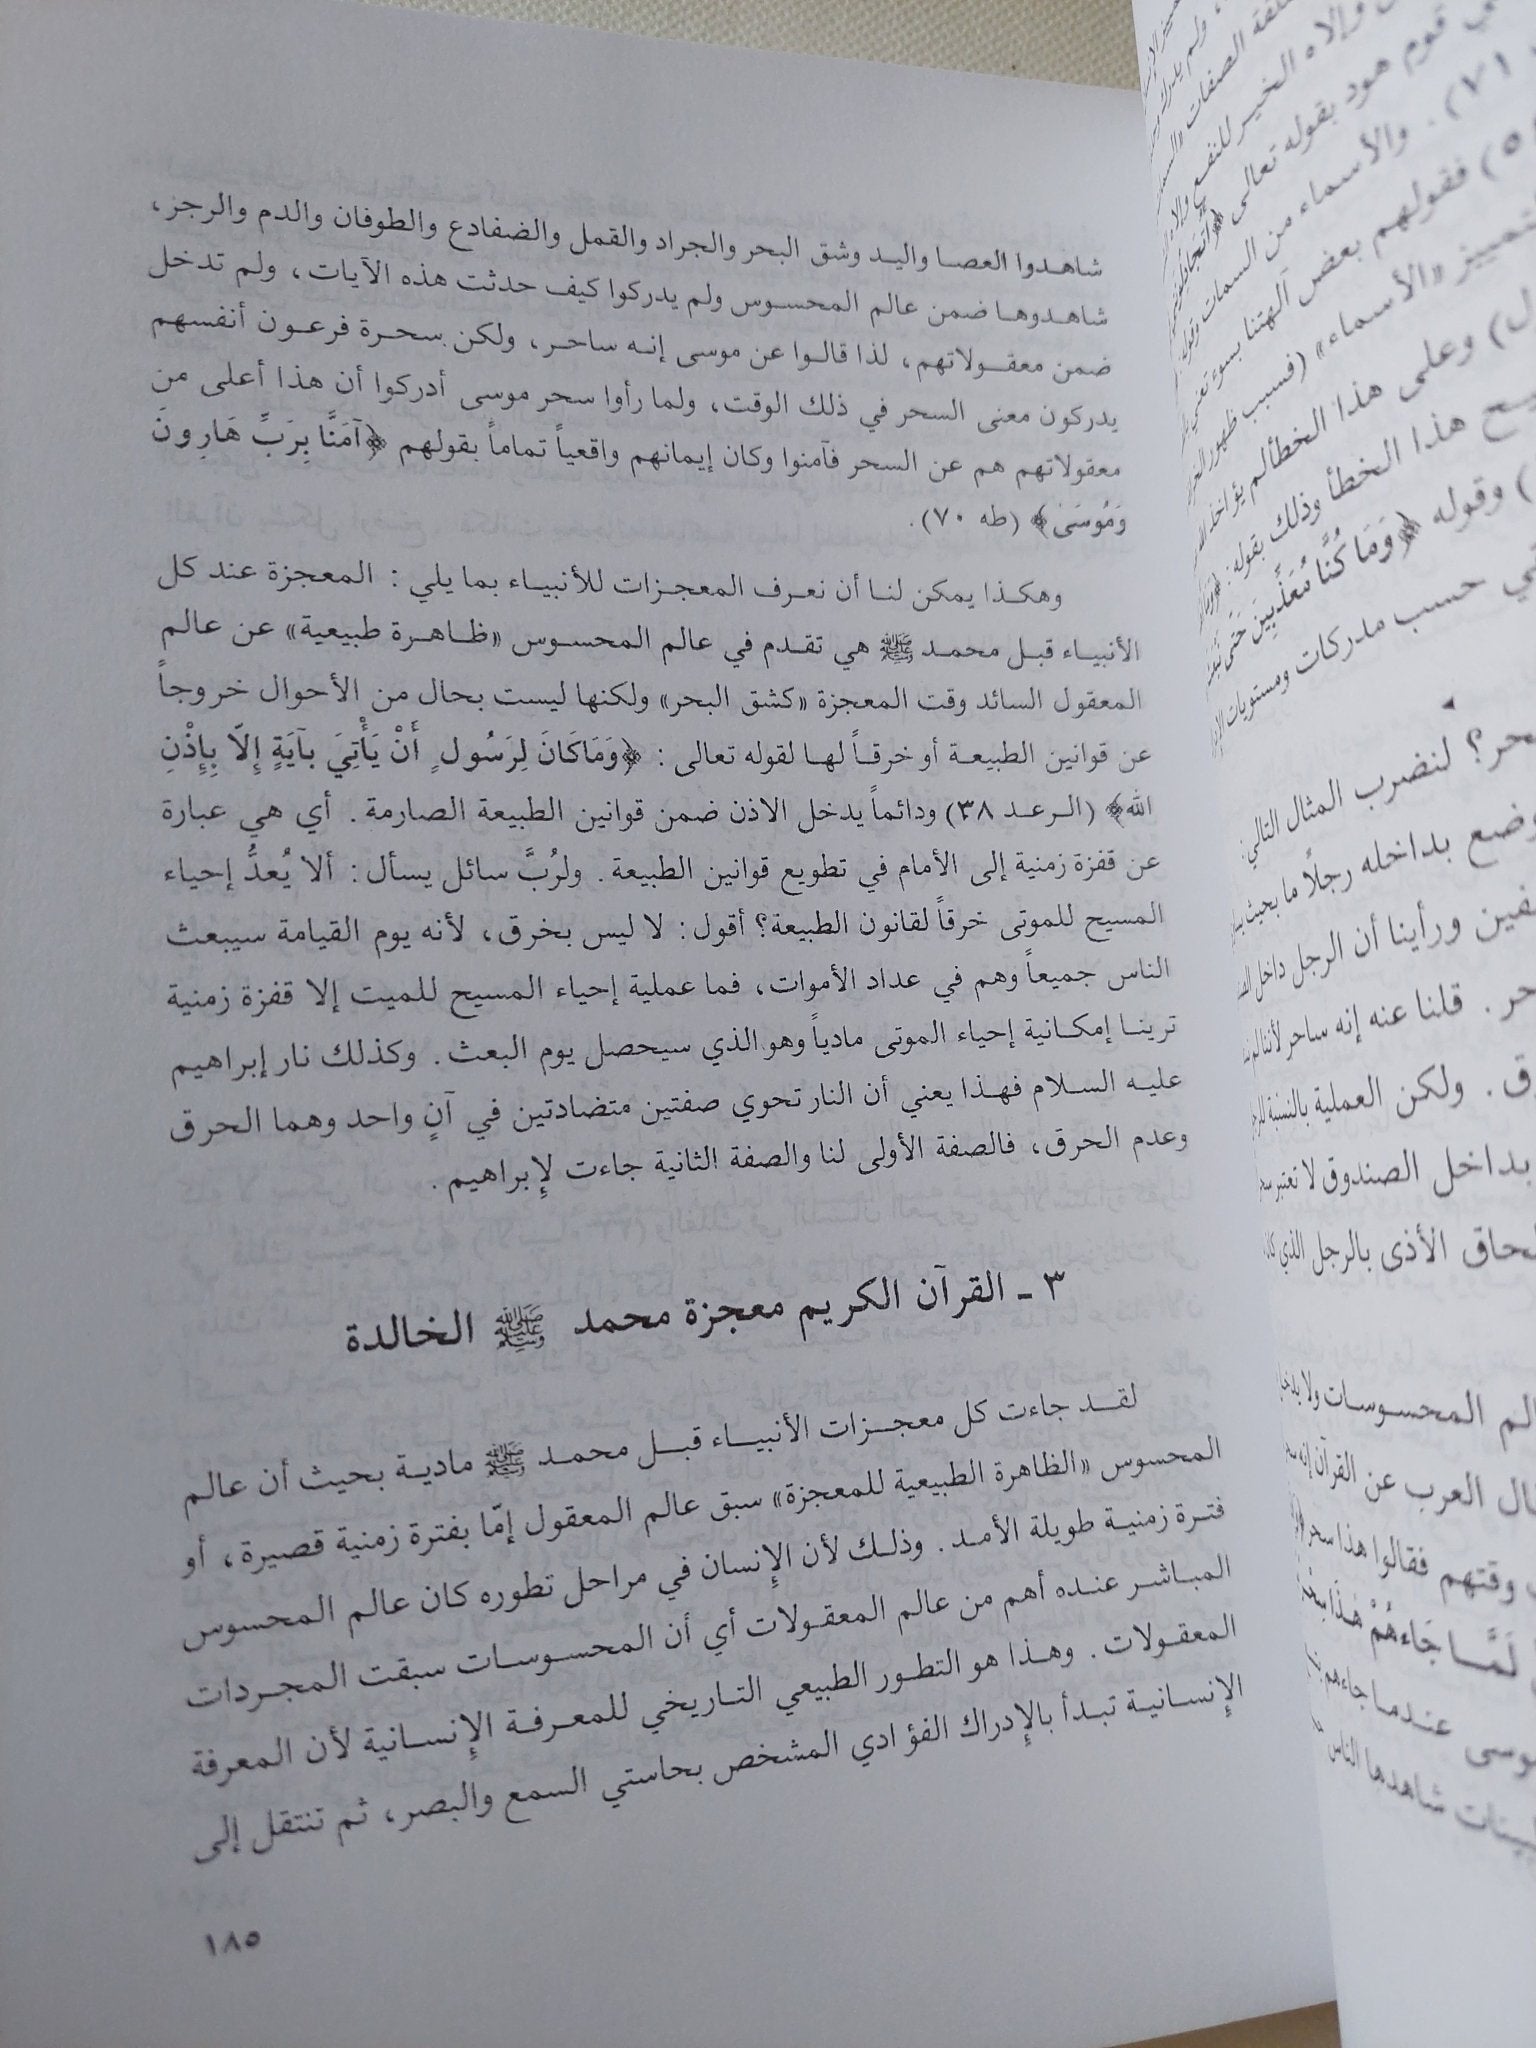 شاهدوا العصا واليد وشق البحر والجراد والقمل والضفادع والطوفان والدم والرجز،
شاهدوها ضمن عالم المحسوس ولم يدركوا كيف حدثت هذه الآيات، ولم تدخل
ضمن معقولاتهم، لذا قالوا عن موسى إنه ساحر، ولكن سحرة فرعون أنفسهم
يدركون معنى السحر في ذلك الوقت، ولما رأوا سحر موسى أدركوا أن هذا أعلى من
معقولاتهم هم عن السحر فآمنوا وكان إيمانهم واقعياً تماماً بقولهم ﴿آمَنَّا بِرَبِّ هَارِونَ
وَمُوسَىٰ﴾ (طه ٧٠).
وهكذا يمكن لنا أن نعرف المعجزات للأنبياء بما يلي : المعجزة عند كل
الأنبياء قبل محمد ﷺ هي تقدم في عالم المحسوس «ظاهرة طبيعية» عن عالم
المعقول السائد وقت المعجزة «كشق البحر» ولكنها ليست بحال من الأحوال خروجاً
عن قوانين الطبيعة أو خرقاً لها لقوله تعالى : ﴿وَمَا كَانَ لِرَسُولٍ أَنْ يَأْتِيَ بآيَةٍ إِلّا بِإِذْنِ
الله﴾ (الرعد ٣٨) ودائماً يدخل الاذن ضمن قوانين الطبيعة الصارمة . أي هي عبارة
عن قفزة زمنية إلى الأمام في تطويع قوانين الطبيعة . ولرُبَّ سائل يسأل : ألا يُعدُّ إحياء
المسيح للموتى خرقاً لقانون الطبيعة؟ أقول : لا ليس بخرق، لأنه يوم القيامة سيبعث
الناس جميعاً وهم في عداد الأموات، فما عملية إحياء المسيح للميت إلا قفزة زمنية
ترينا إمكانية إحياء الموتى مادياً وهو الذي سيحصل يوم البعث . وكذلك نار إبراهيم
عليه السلام فهذا يعني أن النار تحوي صفتين متضادتين في آنٍ واحد وهما الحرق
وعدم الحرق، فالصفة الأولى لنا والصفة الثانية جاءت لإبراهيم .
٣ ـ القرآن الكريم معجزة محمد ﷺ الخالدة
لقد جاءت كل معجزات الأنبياء قبل محمد ﷺ مادية بحيث أن عالم
المحسوس «الظاهرة الطبيعية للمعجزة» سبق عالم المعقول إمّا بفترة زمنية قصيرة، أو
فترة زمنية طويلة الأمد . وذلك لأن الإنسان في مراحل تطوره كان عالم المحسوس
المباشر عنده أهم من عالم المعقولات أي أن المحسوسات سبقت المجردات
المعقولات . وهذا هو التطور الطبيعي التاريخي للمعرفة الإنسانية لأن المعرفة
الإنسانية تبدأ بالإدراك الفؤادي المشخص بحاستي السمع والبصر، ثم تنتقل إلى
١٨٥
قوم هود بقوله تعالى
٧١) . والأسماء من السمات
فقولهم بعض آلهتنا بسوء
«الأسماء» (فسبب ظهور
وعلى هذا الخطأ لم يؤاخذ
هذا الخطأ وذلك بقوله :
) وقوله ﴿وَمَا كُنَّا مُعَذِّبِينَ حَتَّى
حسب مدركات ومستويات
لنضرب المثال التالي
بداخله رجلًا ما بحيث
ورأينا أن الرجل داخل
قلنا عنه إنه ساحر لأننا لم
ولكن العملية بالنسبة
بداخل الصندوق لا تعتبر
الأذى بالرجل الذي
المحسوسات ولا
العرب عن القرآن إنه
وقتهم فقالوا هذا سحر
لَمَّا جَاءهُمْ هٰذَا
عندما جاءهم
شاهدها الناس